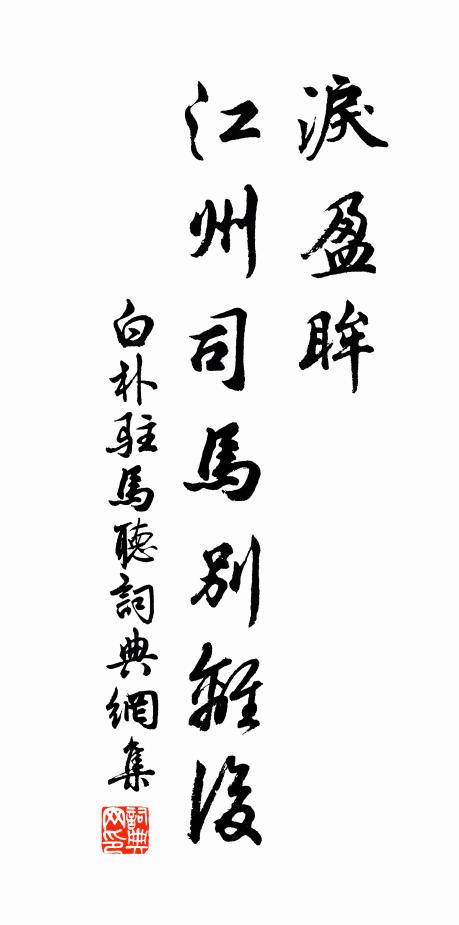 淚盈眸
江州司馬別離後
白朴駐馬聽詞典網集
詞典
网印